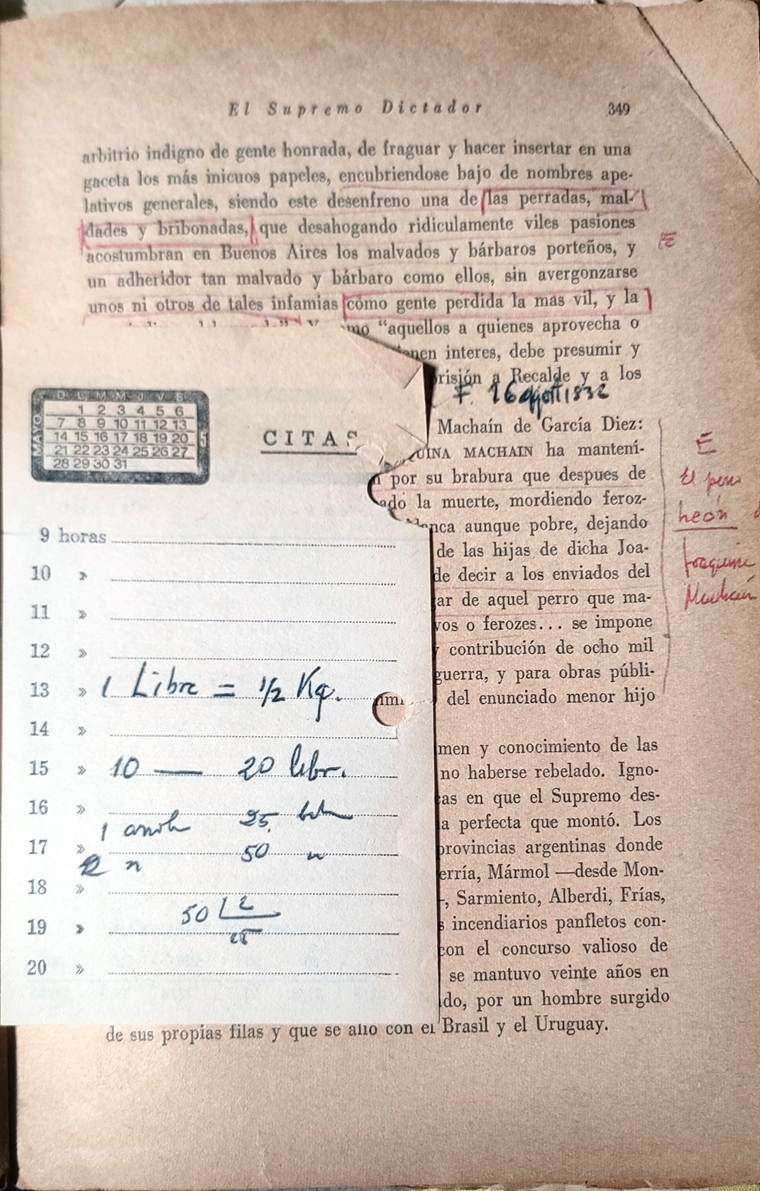 El Supremo Dictador 349
arbitrio indigno de gente honrada, de fraguar y hacer insertar en una
gaceta los más inicuos papeles, encubriendose bajo de nombres ape-
lativos generales, siendo este desenfreno una de las perradas, mal-
dades y bribonadas, que desahogando ridiculamente viles pasiones
acostumbran en Buenos Aires los malvados y bárbaros porteños, y
un adheridor tan malvado y bárbaro como ellos, sin avergonzarse
unos ni otros de tales infamias como gente perdida la mas vil, y la
mo “aquellos a quienes aprovecha o
nen interes, debe presumir y
risión a Recalde y a los
F. 16 agosti 1832
Machaín de García Diez:
UINA MACHAIN ha manteni-
por su brabura que despues de
ado la muerte, mordiendo feroz-
nca aunque pobre, dejando
de las hijas de dicha Joa-
de decir a los enviados del
ar de aquel perro que ma-
vos o ferozes... se impone
y contribución de ocho mil
guerra, y para obras públi-
del enunciado menor hijo
men y conocimiento de las
no haberse rebelado. Igno-
as en que el Supremo des-
a perfecta que montó. Los
provincias argentinas donde
erría, Mármol —desde Mon-
, Sarmiento, Alberdi, Frías,
s incendiarios panfletos con-
con el concurso valioso de
se mantuvo veinte años en
do, por un hombre surgido
de sus propias filas y que se alió con el Brasil y el Uruguay.
E
El perro
Joaquina
Machain
MAYO 5
D L M M J V S
1 2 3 4 5 6
7 8 9 10 11 12 13
14 15 16 17 18 19 20
21 22 23 24 25 26 27
28 29 30 31
CITAS
9 horas
10 »
11 »
12 »
13 » 1 Libra = 1/2 Kg.
14 »
15 » 10 — 20 libr.
16 »
1 arroba 25
17 »
2 " 50 "
18 »
50 2
19 » 25
20 »